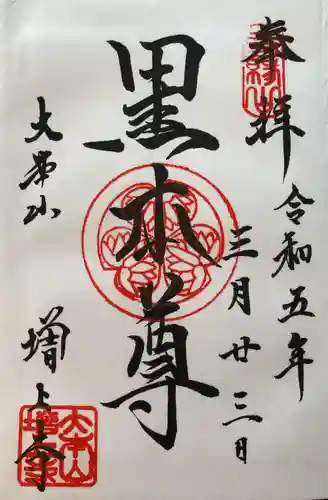 奉拝
令和五年
三月廿三日
黒本尊
大本山
増上寺